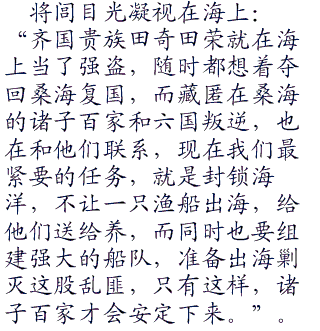 将闾目光凝视在海上：
“齐国贵族田奇田荣就在海
上当了强盗，随时都想着夺
回桑海复国，而藏匿在桑海
的诸子百家和六国叛逆，也
在和他们联系，现在我们最
紧要的任务，就是封锁海
洋，不让一只渔船出海，给
他们送给养，而同时也要组
建强大的船队，准备出海剿
灭这股乱匪，只有这样，诸
子百家才会安定下来。”。